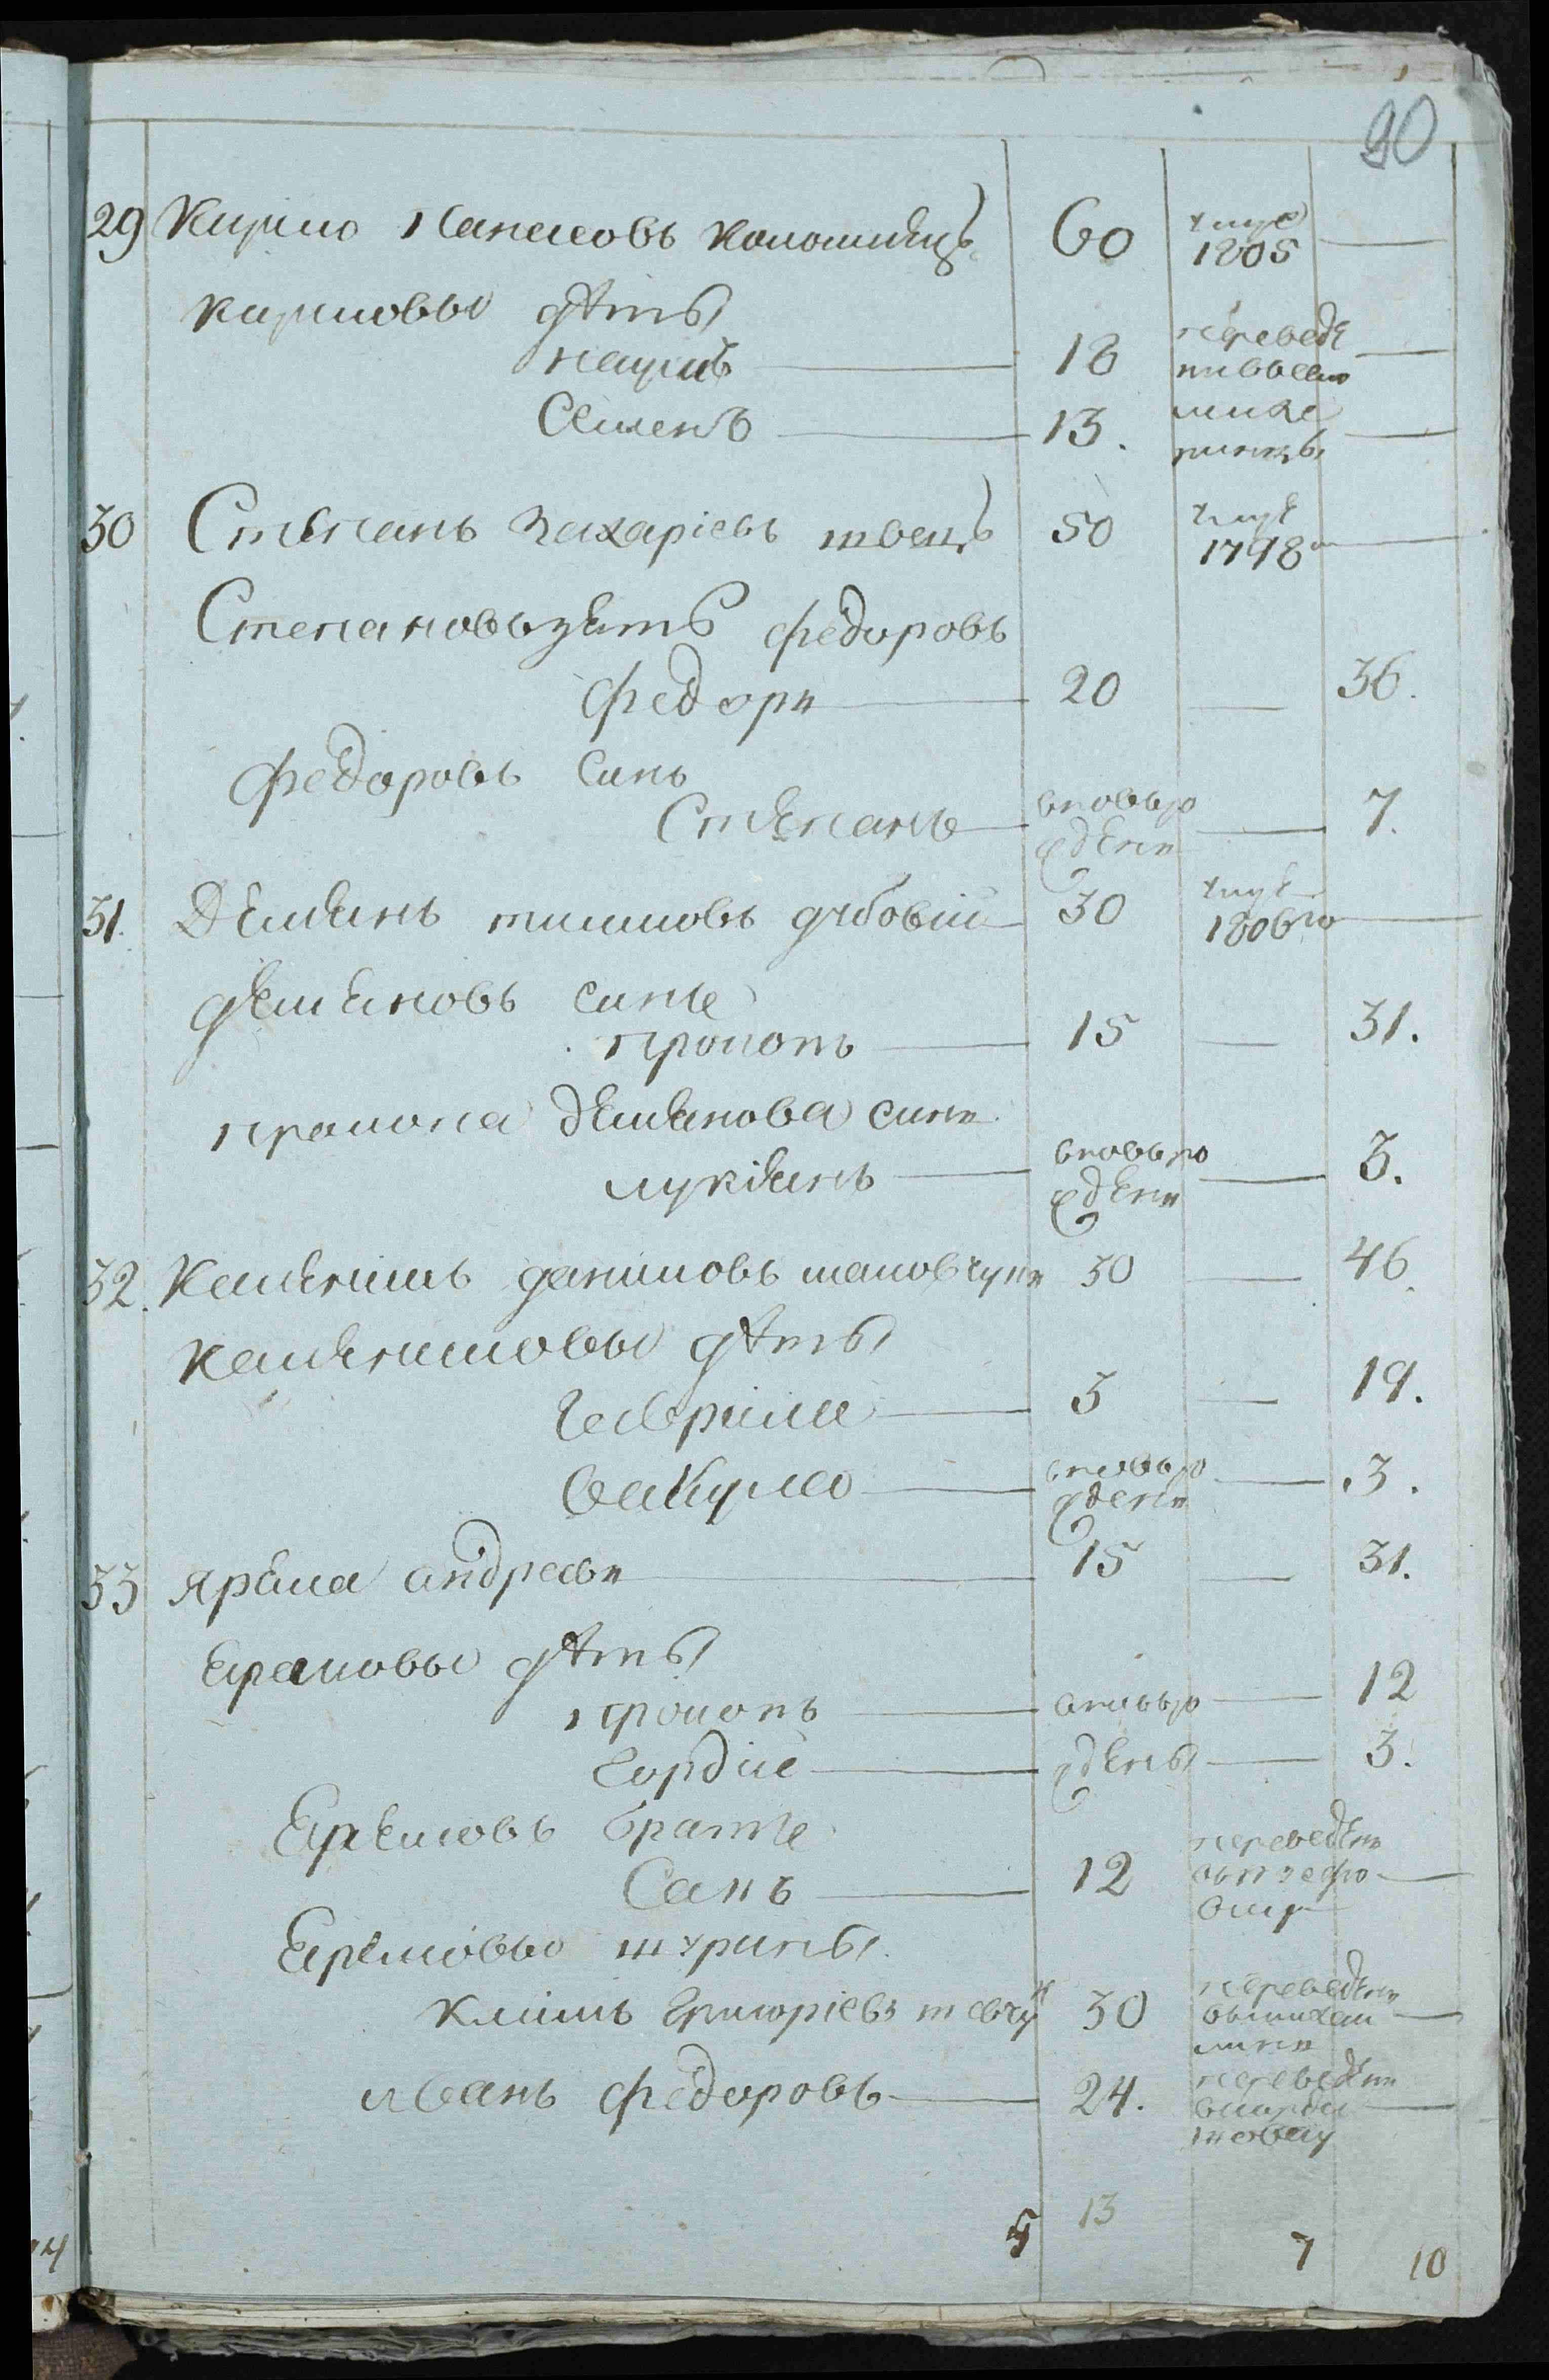 90
29 Кирило Панасовъ Коломиецъ 60 1805
Кириловы дѣты
наумъ 18 переведе
Семенъ 13.
30 Степанъ Захаріевъ швецъ 50 1798
Степановъ зять федоровъ
федоръ 20 36.
федоровъ синъ
Степанъ вновьро ждена 7.
31. Демянъ тимковъ дубовій 30 1806го
демяновъ синъ
прокопъ 15 31.
прокопа демянова синъ
лукянъ вновьро жденъ 3.
32. Каленикъ даниловъ 30 46.
Калениковы дѣты
Гаврило 3 19.
Вакула вновьро жденъ 3.
33 Ярема андреевъ 15 31.
Еремовы дѣты
прокопъ вновьро 12
Гордій ждены 3.
Еремовъ братъ
Сакъ 12 переведенъ
Еремовы шурины
Климъ Григоріевъ шевчук 30 переведенъ
иванъ федоровъ 24. переведенъ
5 13 7 10